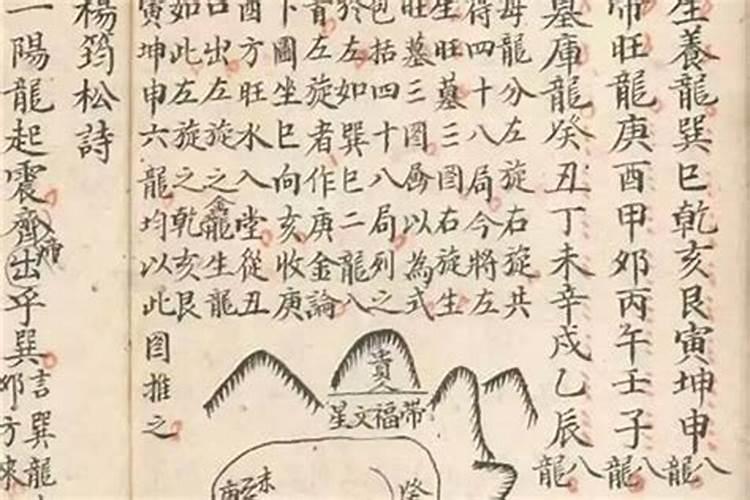 生養龍巽巳乾亥艮寅坤申八龍
帝旺龍庚酉甲卯丙午壬子八龍
墓庫龍癸丑丁未辛戌乙辰八龍
每龍分左旋右旋共
得四十八局今將左
生旺墓三图右旋生
旺墓三图以為式
包括四十八局列之
於左如巽巳二龍八
首左旋者作庚金論
下圖坐巳向亥收庚
酉方旺水入堂從丑
口出左旋之龍生龍
如此左旋之乾亥艮
寅坤申六龍均以此图推之
貴人
帶福文星
未
楊筠松詩
一陽龍起震齊出乎巽
言巽龍
卯方來